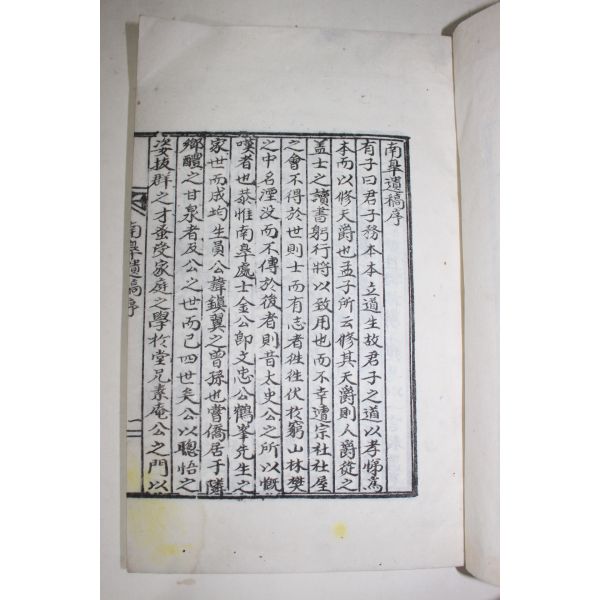 南皐遺稿序
有子曰君子務本本立道生故君子之道以孝悌爲
本而以修天爵也孟子所云修其天爵則人爵從之
盖士之讀書躬行將以致用也而不幸遭宗社社屋
之會不得於世則士而有志者徃徃伏於窮山林樊
之中名湮没而不傳於後者則昔太史公之所以慨
嘆者也恭惟南皐處士金公卽文忠公鶴峯先生之
家世而成均生員公諱鎭翼之曾孫也嘗僑居于隣
鄉醴之甘泉者及公之世而已四世矣公以聰怡之
姿拔群之才蚤受家庭之學於堂兄素庵公之門以
南皐遺稿序
一